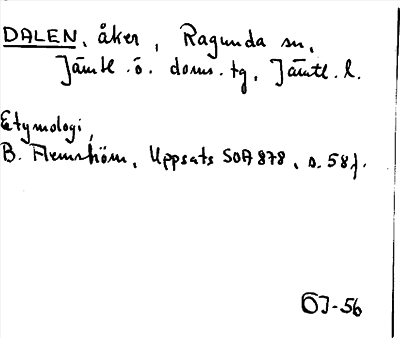 DALEN, åker, Ragunda sn,
Jämtl. ö. doms. tg, Jämtl. l.
Etymologi,
B. Flemström, Uppsats SOA 878, s. 58 f.
ÖJ-56